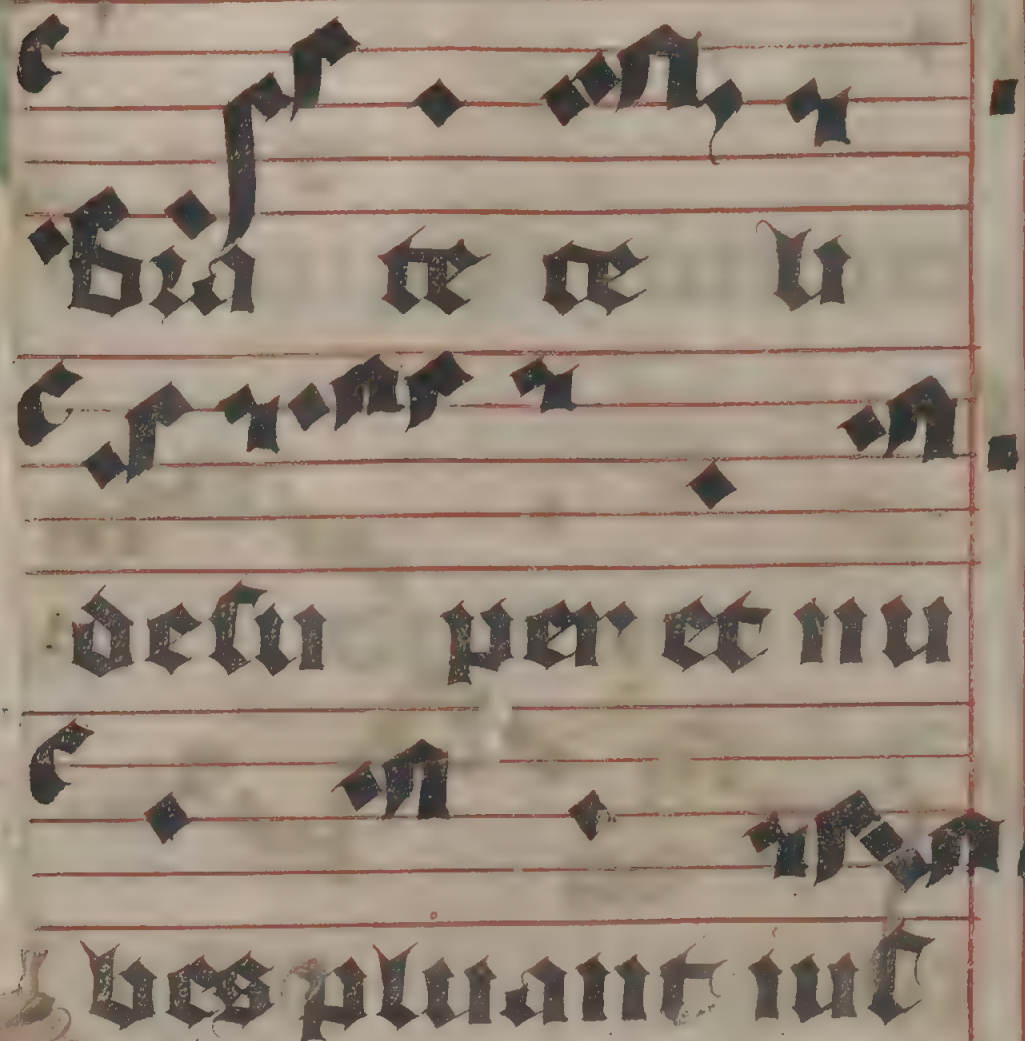 Ora te ce li
desu per et nu
bes pluant iuſ